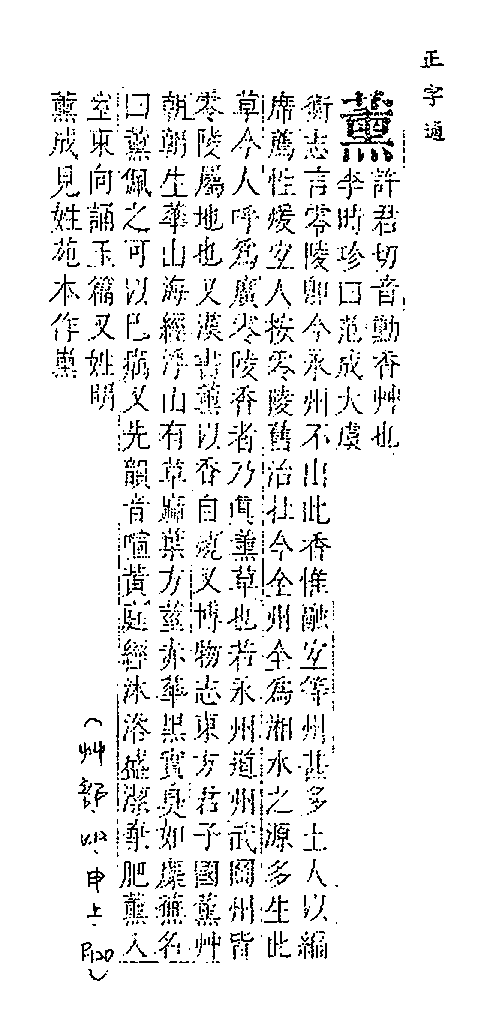 正字通
薰
許君切音勳香艸也
李時珍曰范成大虞
衡志言零陵即今永州不出此香惟融宜等州甚多土人以編
席薦性煖宜人按零陵舊治在今全州全為湘水之源多生此
草今人呼為廣零陵香者乃真薰草也若永州道州武岡州皆
零陵屬地也又漢書薰以香自燒又博物志東方君子國薰艸
朝朝生華山海經浮山有草麻葉方莖赤華黑實臭如蘪蕪名
曰薰佩之可以已癘又先韻音喧黃庭經沐浴盛潔棄肥薰入
室東向誦玉篇又姓明
薰成見姓苑本作𦻀
(艸部 申上 P120)